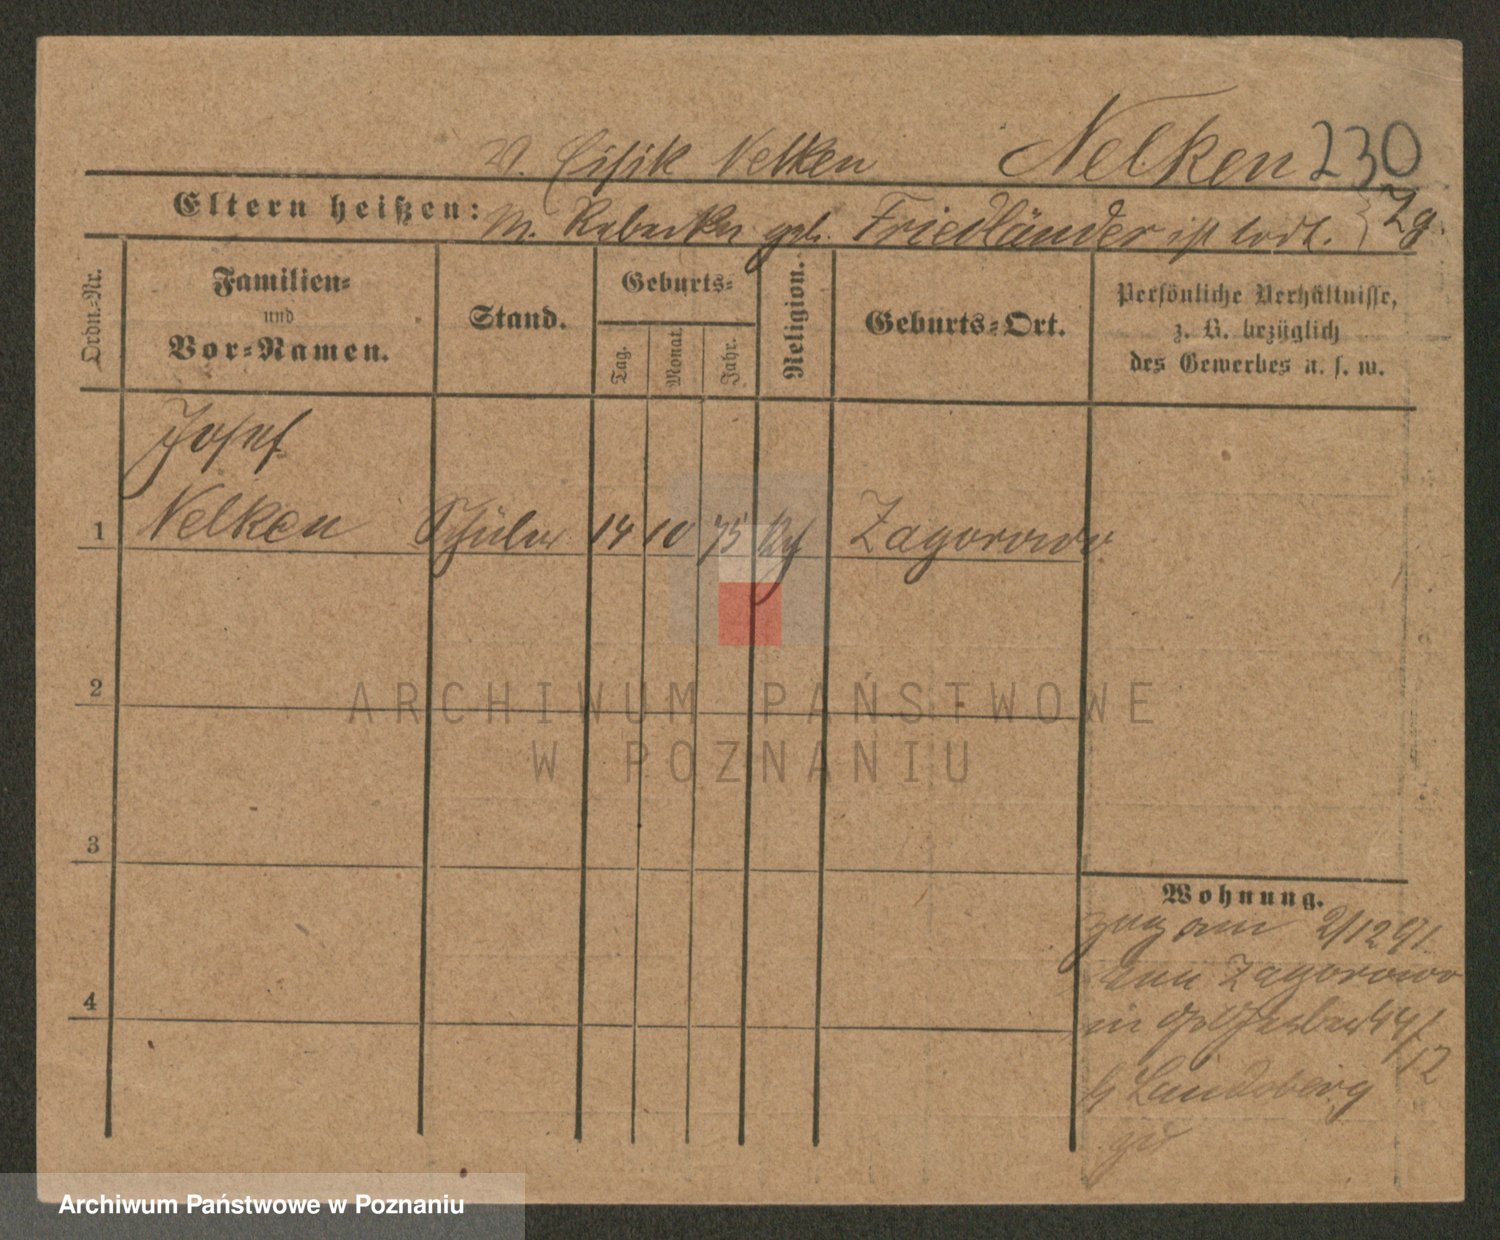 V. Eisik Nelken Nelken 230
Eltern heißen: M. Rebecka geb. Friedländer ist todt. Zg.
Ordn.-Nr.
Familien-
und
Vor-Namen.
Stand.
Geburts-
Tag.
Monat.
Jahr.
Religion.
Geburts-Ort.
Persönliche Verhältnisse,
z. B. bezüglich
des Gewerbes u. s. w.
Josef
1 Nelken Schüler 14 10 75 Zagorowo
2
3
4
Wohnung.
zog am 2/12 91
von Zagorowo
in
12
b Landsberg
ARCHIWUM PAŃSTWOWE
W POZNANIU
Archiwum Państwowe w Poznaniu